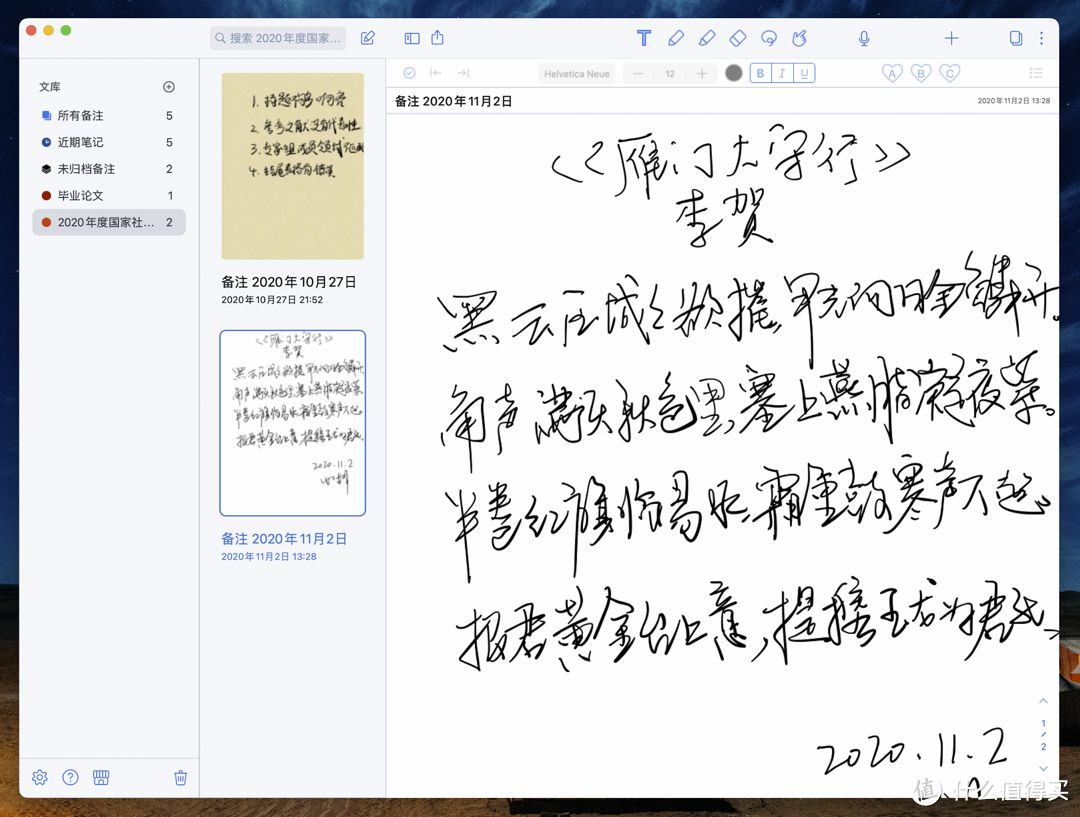 搜索 2020年度国家...
文库
所有备注 5
近期笔记 5
未归档备注 2
毕业论文 1
2020年度国家社... 2
2. 参考文献没有代表性
3. 专家组成员领域
备注 2020年10月27日
2020年10月27日 21:52
备注 2020年11月2日
2020年11月2日 13:28
T
Helvetica Neue
12
B I U
A B C
备注 2020年11月2日
2020年11月2日 13:28
《雁门太守行》
李贺
黑云压城城欲摧,甲光向日金鳞开。
角声满天秋色里,塞上燕脂凝夜紫。
半卷红旗临易水,霜重鼓寒声不起。
报君黄金台上意,提携玉龙为君死。
2020.11.2
1
/
2
值 什么值得买